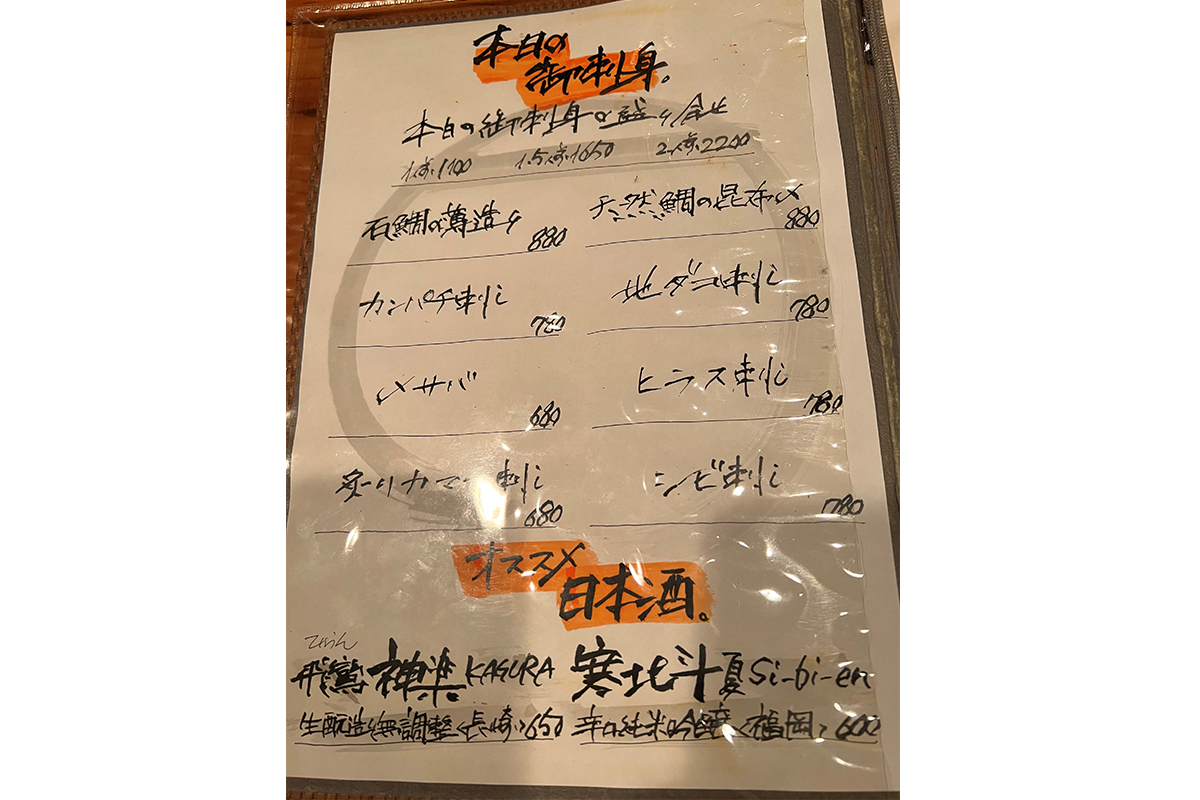 本日の
御刺身。
本日の御刺身の盛り合せ
1人前.1100 1.5人前.1650 2人前.2200
石鯛の薄造り
880
天然鯛の昆布〆
880
カンパチ刺し
780
地ダコ刺し
780
〆サバ
680
ヒラス刺し
780
炙りカマス刺し
680
シビ刺し
780
オススメ
日本酒。
ひらん
飛鸞 神楽 KAGURA
生酛造り無調整<長崎>650
寒北斗 夏 Si-bi-en
辛口純米吟醸<福岡>600